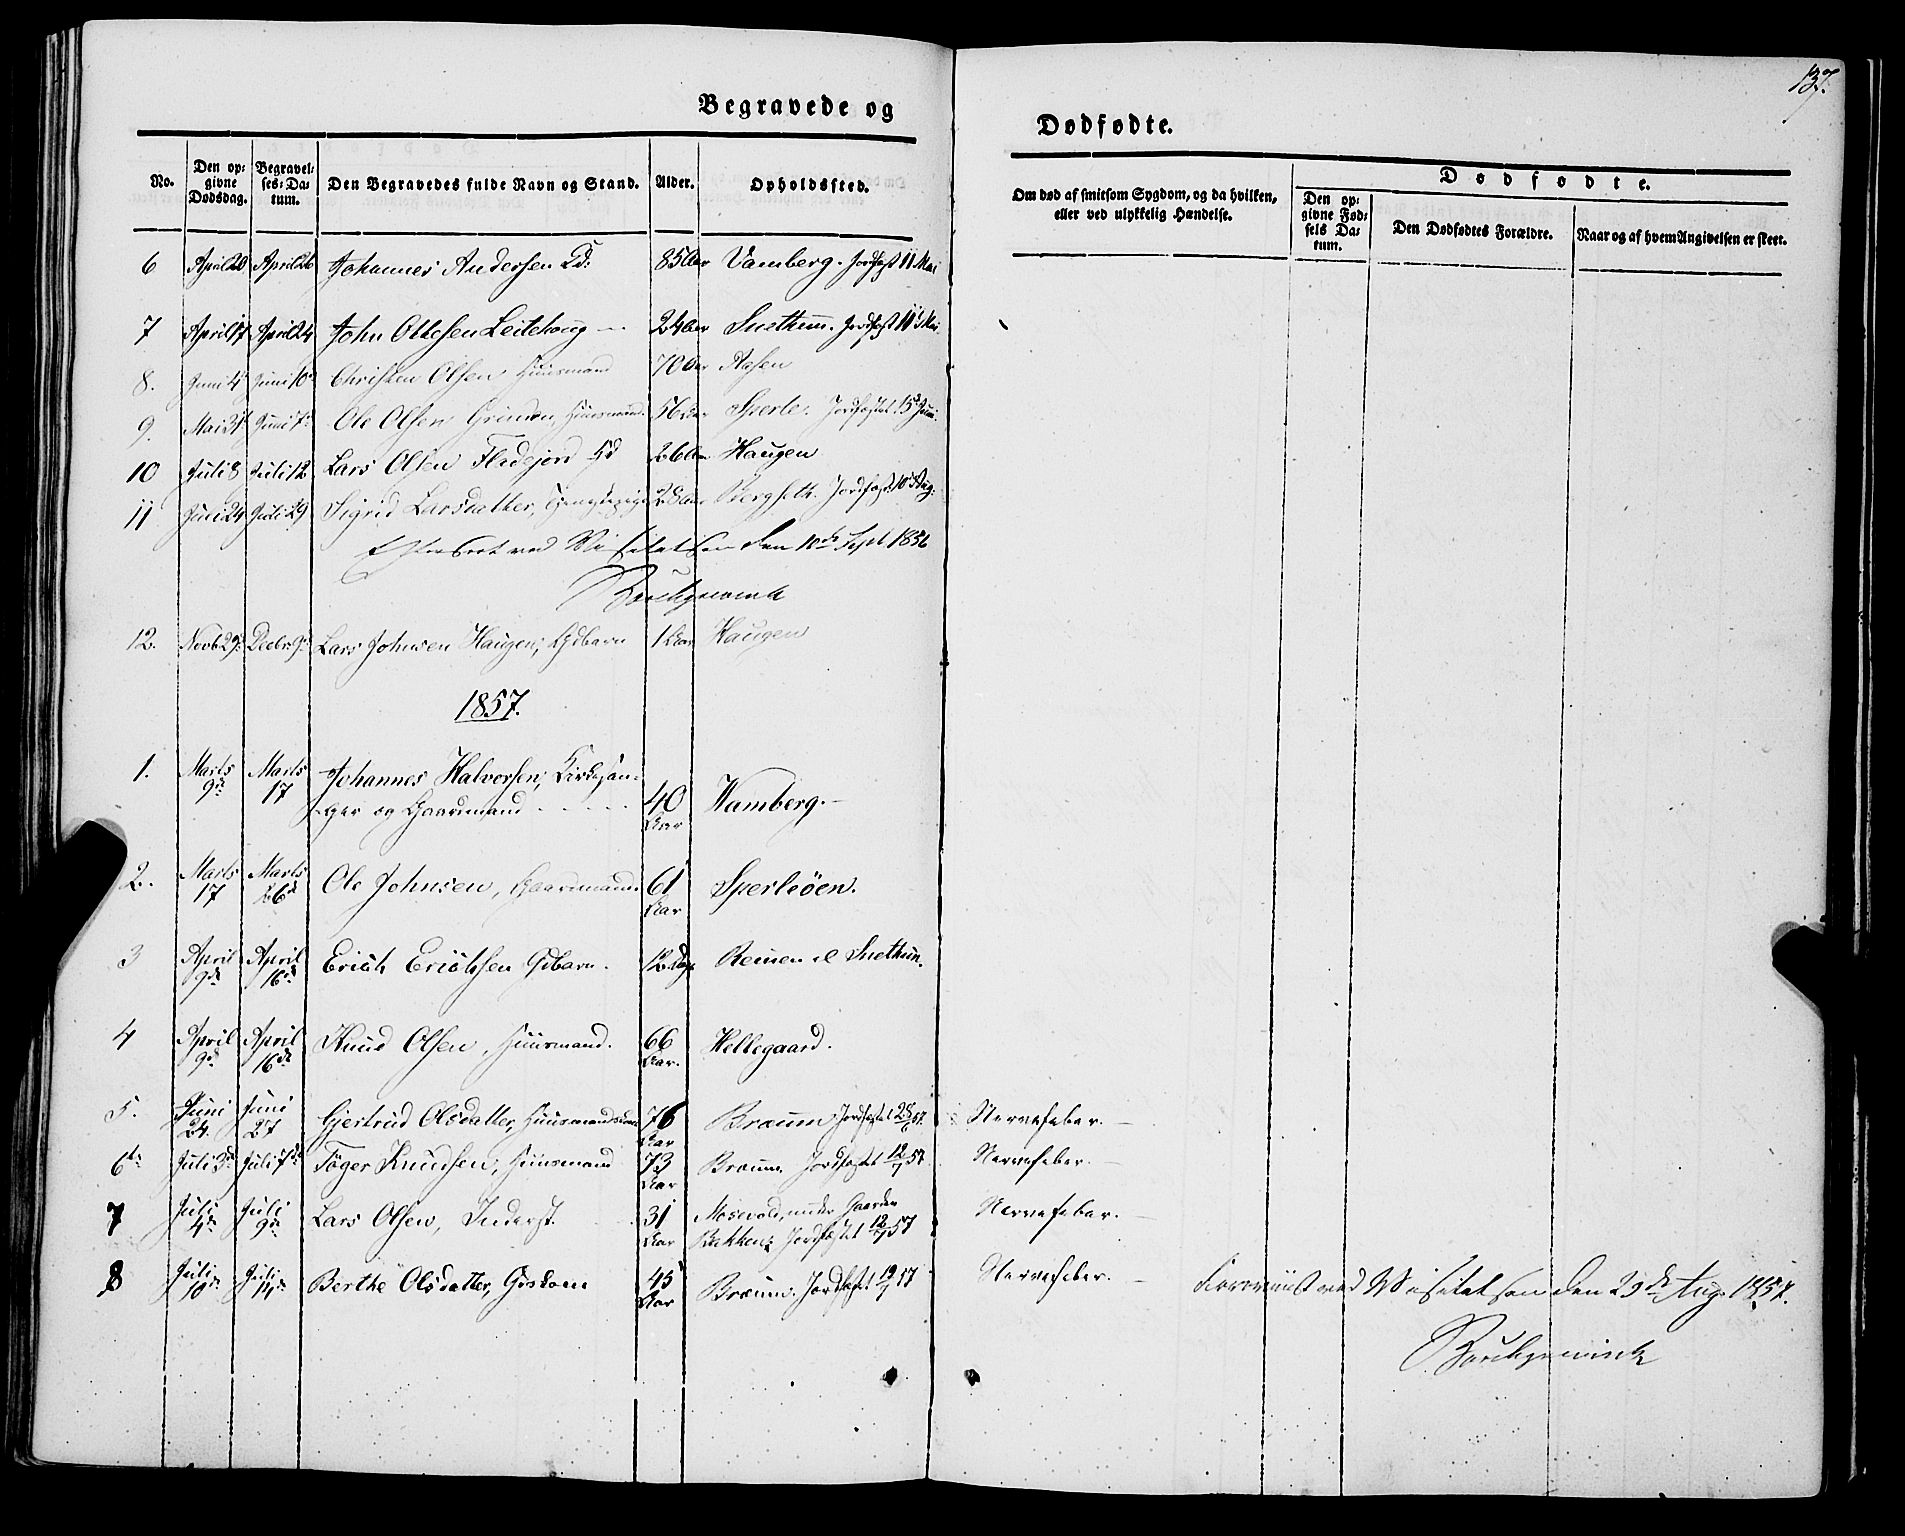 137.
Begravede og
Dødfødte.
No.
Den op-
givne
Dødsdag.
Begravel-
ses-Da-
tum.
Den Begravedes fulde Navn og Stand.
Alder.
Opholdssted.
Om død af smitsom Sygdom, og da hvilken,
eller ved ulykkelig Hændelse.
Dødfødte.
Den op-
givne Fød-
sels Da-
tum.
Den Dødfødtes Forældre.
Naar og af hvem Angivelsen er skeet.
6 April 20 April 26 Johannes Andersen 85 Aar Vamberg. Jordfæst 11 Mai
7 April 17 April 24 John Ottesen Leitehoug 24 Aar Snethun. Jordfæst 11 Mai
8. Juni 4 Juni 10 Christen Olsen Huusmand 70 Aar Aasen
9. Mai 31 Juni 7 Ole Olsen Grinden, Huusmand. 56 Aar Sperle. Jordfæstet 15 Juni.
10 Juli 8 Juli 12 Lars Olsen Fladejord 26 Aar Haugen
11 Juli 24 Juli 29 Sigrid Larsdatter, 28 Aar Bergseth. Jordfæst 10 Aug.
Efterseet ved Visitatsen den 10de Sept 1856
12. Novb 29 Decbr 9 Lars Johnsen Haugen, Gdbarn 1 Aar Haugen
1857.
1. Marts Marts Johannes Halvorsen, Kirkesan-
9de 17 ger og Gaardmand 40 Aar Wamberg.
2. Marts Marts Ole Johnsen, Gaardmand. 61 Aar Sperleøen.
17 26d
3 April April Erich Erichsen Gdbarn. 12 Dage Reinen Snethun.
9de 16de
4 April April Knud Olsen, Huusmand. 66 Aar. Hellegaard.
9de 16de
5. Juni Juni Gjertrud Olsdatter, Huusmandskone 76 Aar Bræum Jordfæstet Nervefeber.
24. 27
6te Juli 3d Juli 7de Töger Knudsen, Huusmand 73 Aar Bræum. Jordfæstet 12/7 57 Nervefeber.
7 Juli Juli Lars Olsen, Inderst. 31 Aar Mosevold, under Gaarden Nervefeber.
4de 9de Bakken; Jordfæstet 12/7 57
8 Juli Juli Berthe Olsdatter, 45 Aar Bræum. Jordfæst 19/7 57 Nervefeber.
10de 14de
ved Visitatsen den 29de Aug. 1857.